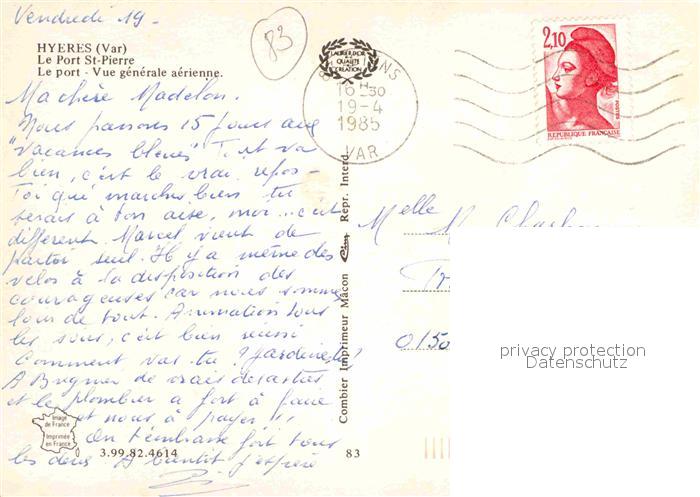 Vendredi 19 -
83
HYERES (Var)
Le Port St-Pierre
Le port - Vue générale aérienne.
Ma chère Madelon.
Nous passons 15 jours aux
"Vacances bleues" Tout va
bien, c'est le vrai repos -
Toi qui marches bien tu
serais à ton aise, moi... c'est
différent. Marcel vient de
partir seul. Il y a même des
vélos à la disposition des
courageuses car nous sommes
loin de tout. Animation tous
les soirs, c'est bien réussi
Comment vas-tu ?
A de vrais désastres
et le plombier a fort à faire
et nous à payer !!
On t'embrasse fort tous
les deux A bientôt j'espère
LAURIER D'OR
QUALITE
CREATION
16 H 30
19-4
1985
VAR
2,10
POSTES
REPUBLIQUE FRANÇAISE
Melle M.
0150
Combier Imprimeur Mâcon Cim Repr. Interd.
privacy protection
Datenschutz
Image
de France
Imprimée
en France
3.99.82.4614
83